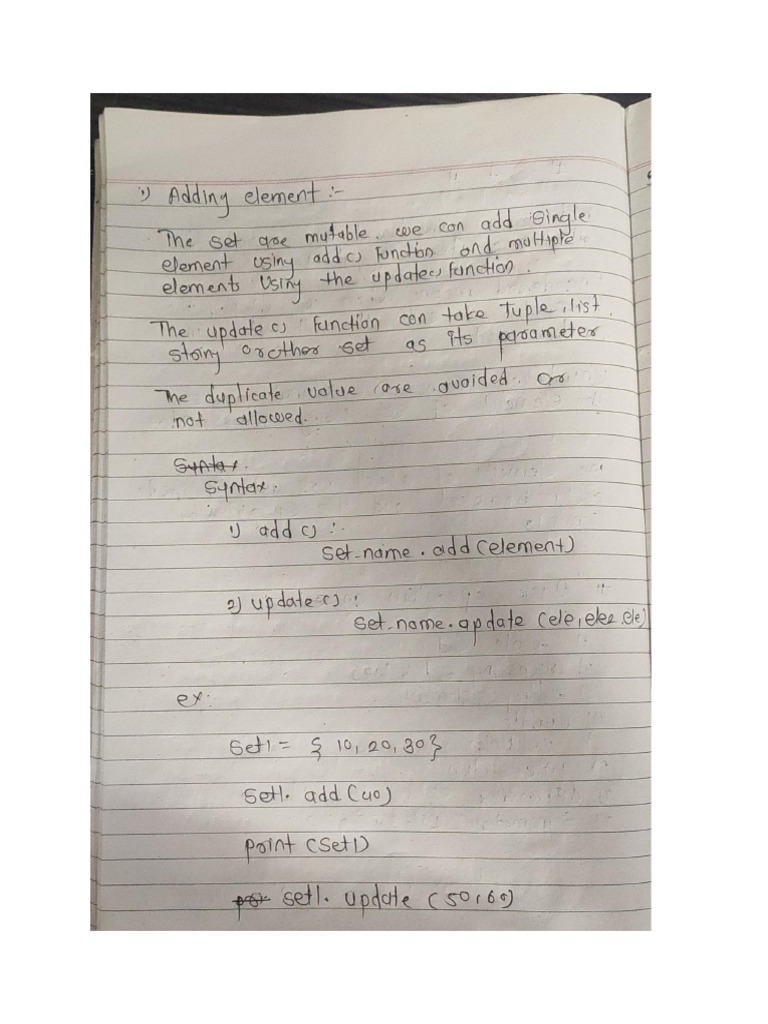 1) Adding element :-
The set are mutable. we can add single
element using add() function and multiple
elements Using the update() function.
The update() function can take Tuple, list
string or other set as its parameter
The duplicate value are avoided or
not allowed.
Syntax.
Syntax.
1) add() :-
Set-name.add(element)
2) update() :
Set-name.update (ele, ele2, ele)
ex.
Set1 = { 10, 20, 30}
Set1. add (40)
print (Set1)
set1. update (50,60)